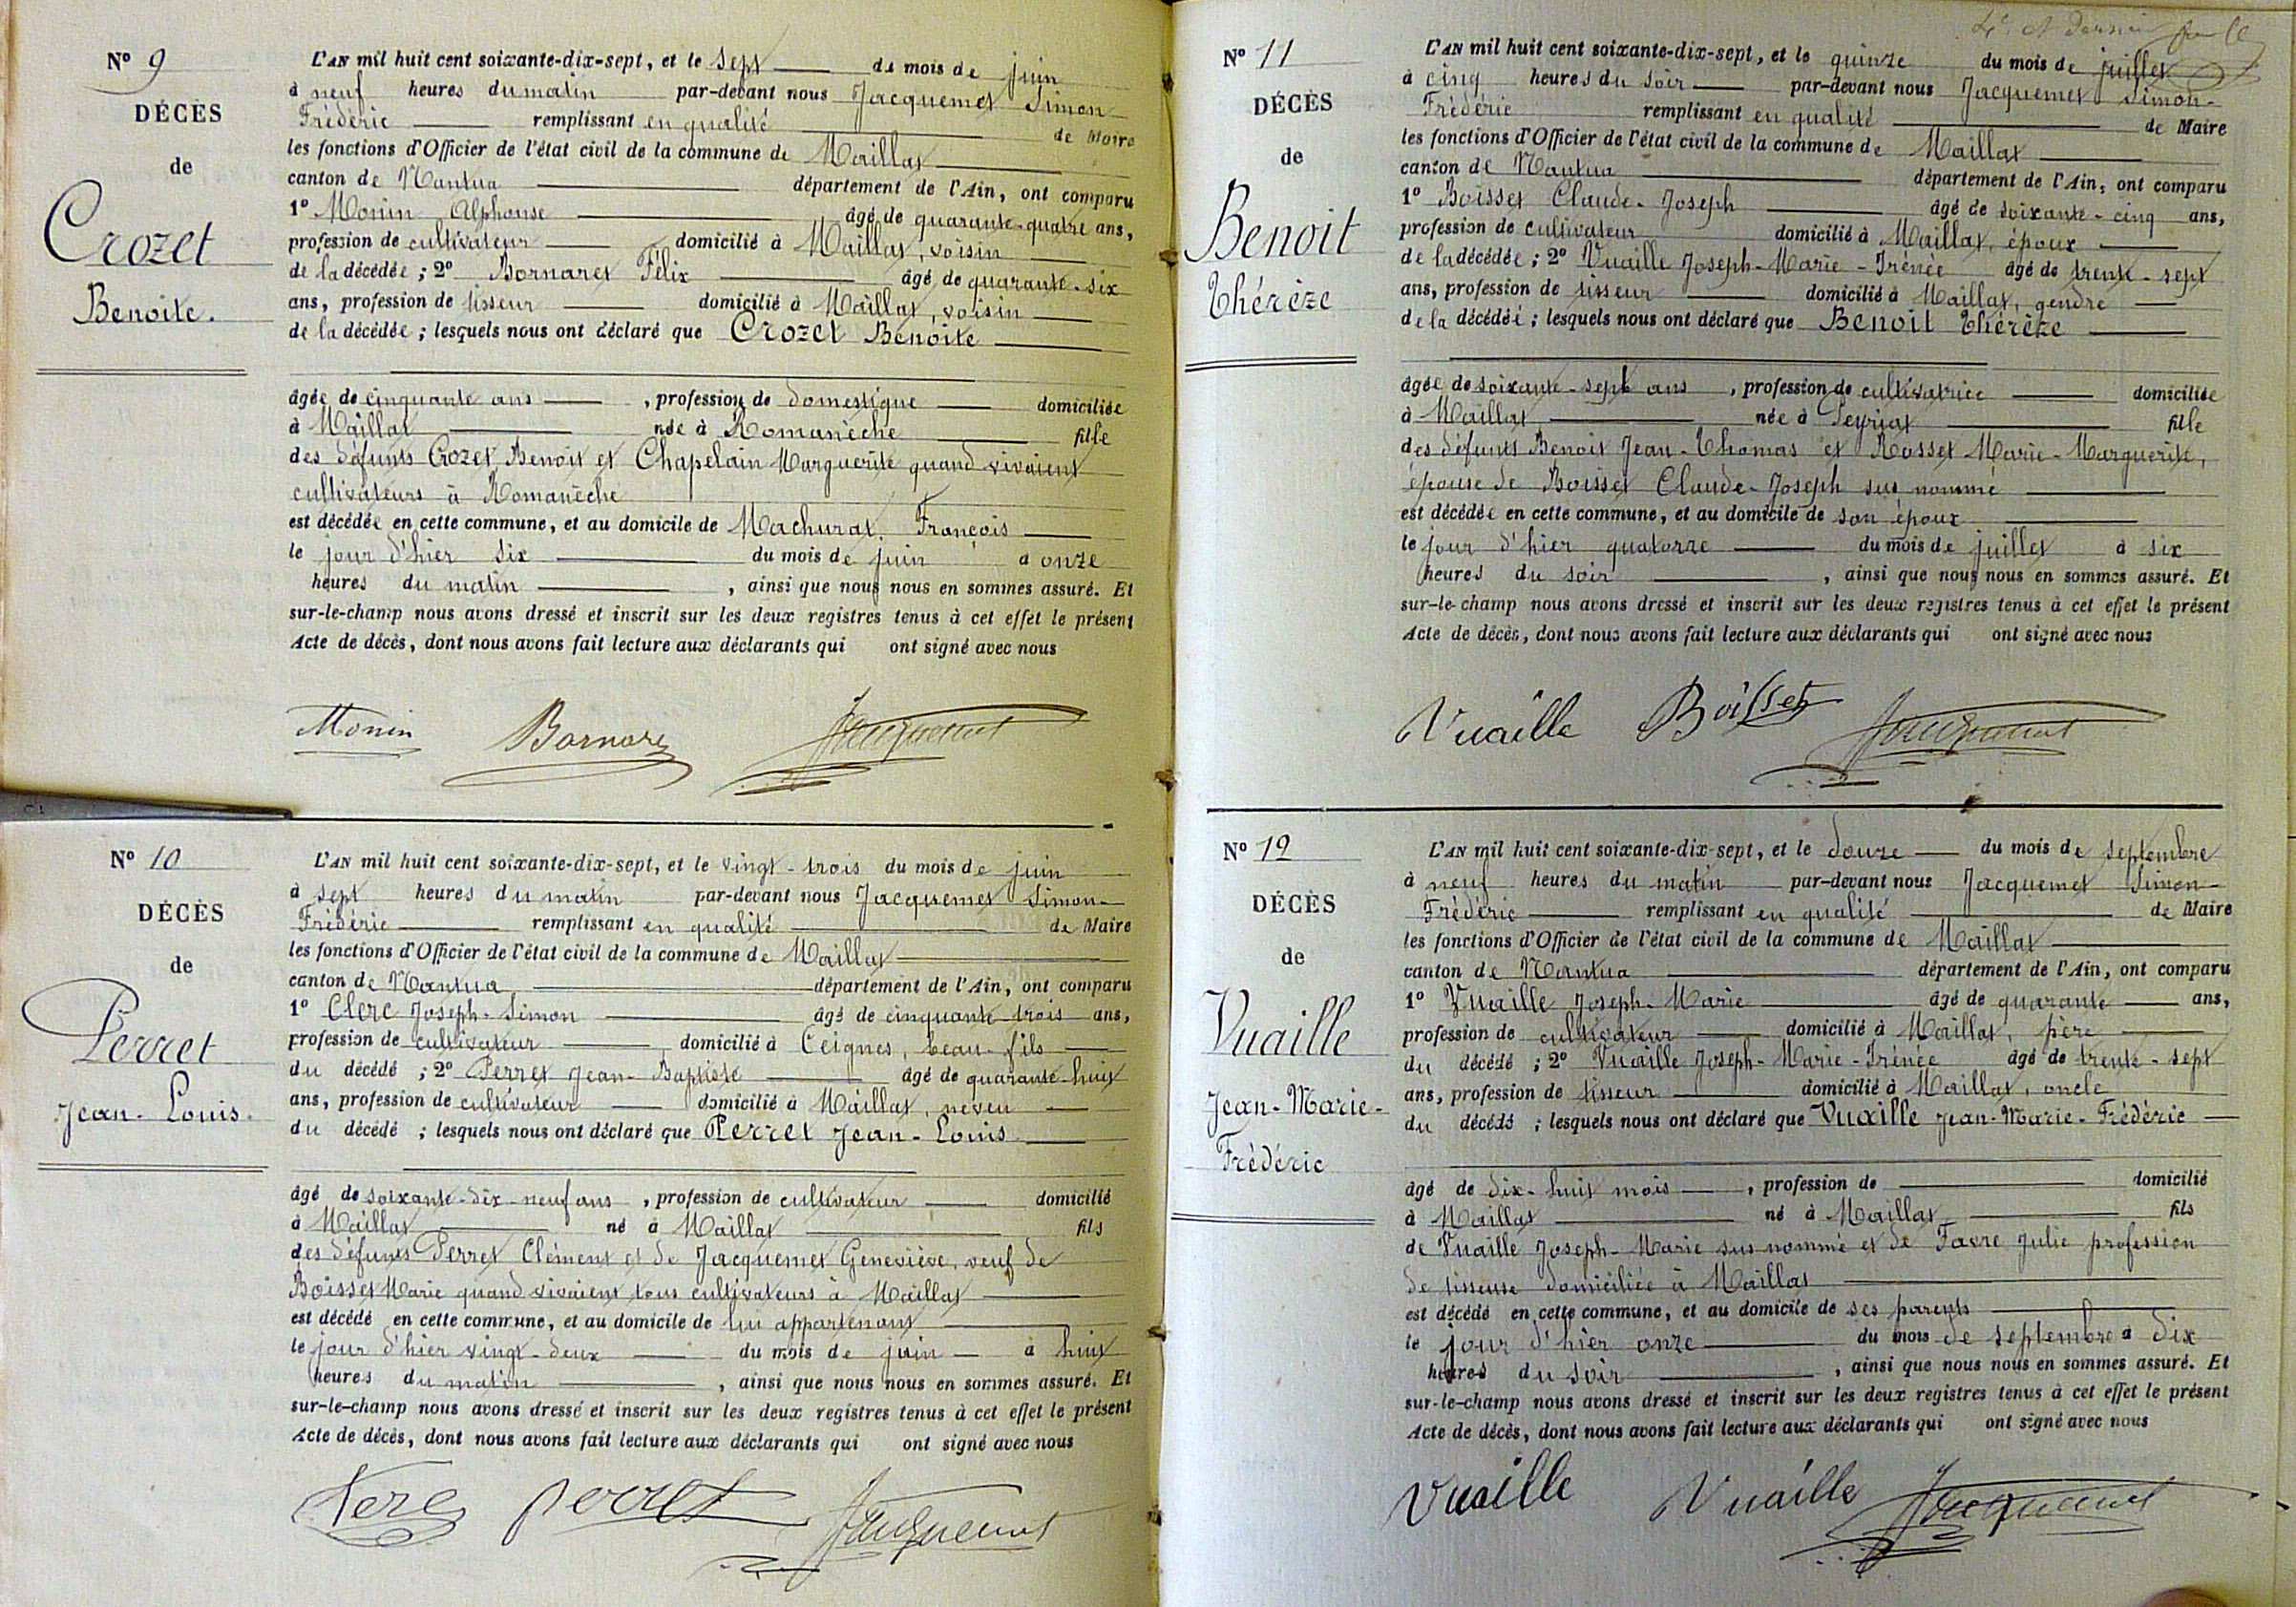 N° 9
DÉCÈS
de
Crozet
Benoite.
L'AN mil huit cent soixante-dix-sept, et le sept du mois de juin
à neuf heures du matin par-devant nous Jacquemet Simon-
Frédéric remplissant en qualité de Maire
les fonctions d'Officier de l'état civil de la commune de Maillat
canton de Nantua département de l'Ain, ont comparu
1° Monin Alphonse âgé de quarante-quatre ans,
profession de cultivateur domicilié à Maillat, voisin
de la décédée ; 2° Bornaret Félix âgé de quarante-six
ans, profession de tisseur domicilié à Maillat, voisin
de la décédée ; lesquels nous ont déclaré que Crozet Benoite
âgée de cinquante ans, profession de domestique domiciliée
à Maillat née à Romanèche fille
des défunts Crozet Benoit et Chapelain Marguerite quand vivaient
cultivateurs à Romanèche
est décédée en cette commune, et au domicile de Machurat François
le jour d'hier six du mois de juin à onze
heures du matin, ainsi que nous nous en sommes assuré. Et
sur-le-champ nous avons dressé et inscrit sur les deux registres tenus à cet effet le présent
Acte de décès, dont nous avons fait lecture aux déclarants qui ont signé avec nous
Monin Bornaret Jacquemet
N° 10
DÉCÈS
de
Perret
Jean-Louis.
L'AN mil huit cent soixante-dix-sept, et le vingt-trois du mois de juin
à sept heures du matin par-devant nous Jacquemet Simon-
Frédéric remplissant en qualité de Maire
les fonctions d'Officier de l'état civil de la commune de Maillat
canton de Nantua département de l'Ain, ont comparu
1° Clerc Joseph-Simon âgé de cinquante-trois ans,
profession de cultivateur domicilié à Ceignes, beau-fils
du décédé ; 2° Perret Jean-Baptiste âgé de quarante-huit
ans, profession de cultivateur domicilié à Maillat, neveu
du décédé ; lesquels nous ont déclaré que Perret Jean-Louis
âgé de soixante-dix-neuf ans, profession de cultivateur domicilié
à Maillat né à Maillat fils
des défunts Perret Clément et de Jacquemet Geneviève, veuf de
Boisset Marie quand vivaient tous cultivateurs à Maillat
est décédé en cette commune, et au domicile de lui appartenant
le jour d'hier vingt-deux du mois de juin à huit
heures du matin, ainsi que nous nous en sommes assuré. Et
sur-le-champ nous avons dressé et inscrit sur les deux registres tenus à cet effet le présent
Acte de décès, dont nous avons fait lecture aux déclarants qui ont signé avec nous
Clerc Perret Jacquemet
N° 11
DÉCÈS
de
Benoit
Thérèze
L'AN mil huit cent soixante-dix-sept, et le quinze du mois de juillet
à cinq heures du soir par-devant nous Jacquemet Simon-
Frédéric remplissant en qualité de Maire
les fonctions d'Officier de l'état civil de la commune de Maillat
canton de Nantua département de l'Ain, ont comparu
1° Boisset Claude-Joseph âgé de soixante-cinq ans,
profession de cultivateur domicilié à Maillat, époux
de la décédée ; 2° Vuaille Joseph-Marie-Irénée âgé de trente-sept
ans, profession de tisseur domicilié à Maillat, gendre
de la décédée ; lesquels nous ont déclaré que Benoit Thérèze
âgée de soixante-sept ans, profession de cultivatrice domiciliée
à Maillat née à Peyriat fille
des défunts Benoit Jean-Thomas et Rosset Marie-Marguerite,
épouse de Boisset Claude-Joseph sus nommé
est décédée en cette commune, et au domicile de son époux
le jour d'hier quatorze du mois de juillet à six
heures du soir, ainsi que nous nous en sommes assuré. Et
sur-le-champ nous avons dressé et inscrit sur les deux registres tenus à cet effet le présent
Acte de décès, dont nous avons fait lecture aux déclarants qui ont signé avec nous
Vuaille Boisset Jacquemet
N° 12
DÉCÈS
de
Vuaille
Jean-Marie-
Frédéric
L'AN mil huit cent soixante-dix-sept, et le douze du mois de septembre
à neuf heures du matin par-devant nous Jacquemet Simon-
Frédéric remplissant en qualité de Maire
les fonctions d'Officier de l'état civil de la commune de Maillat
canton de Nantua département de l'Ain, ont comparu
1° Vuaille Joseph-Marie âgé de quarante ans,
profession de cultivateur domicilié à Maillat, père
du décédé ; 2° Vuaille Joseph-Marie-Irénée âgé de trente-sept
ans, profession de tisseur domicilié à Maillat, oncle
du décédé ; lesquels nous ont déclaré que Vuaille Jean-Marie-Frédéric
âgé de dix-huit mois, profession de domicilié
à Maillat né à Maillat fils
de Vuaille Joseph-Marie sus nommé et de Favre Julie profession
de tisseuse domiciliée à Maillat
est décédé en cette commune, et au domicile de ses parents
le jour d'hier onze du mois de septembre à dix
heures du soir, ainsi que nous nous en sommes assuré. Et
sur-le-champ nous avons dressé et inscrit sur les deux registres tenus à cet effet le présent
Acte de décès, dont nous avons fait lecture aux déclarants qui ont signé avec nous
Vuaille Vuaille Jacquemet